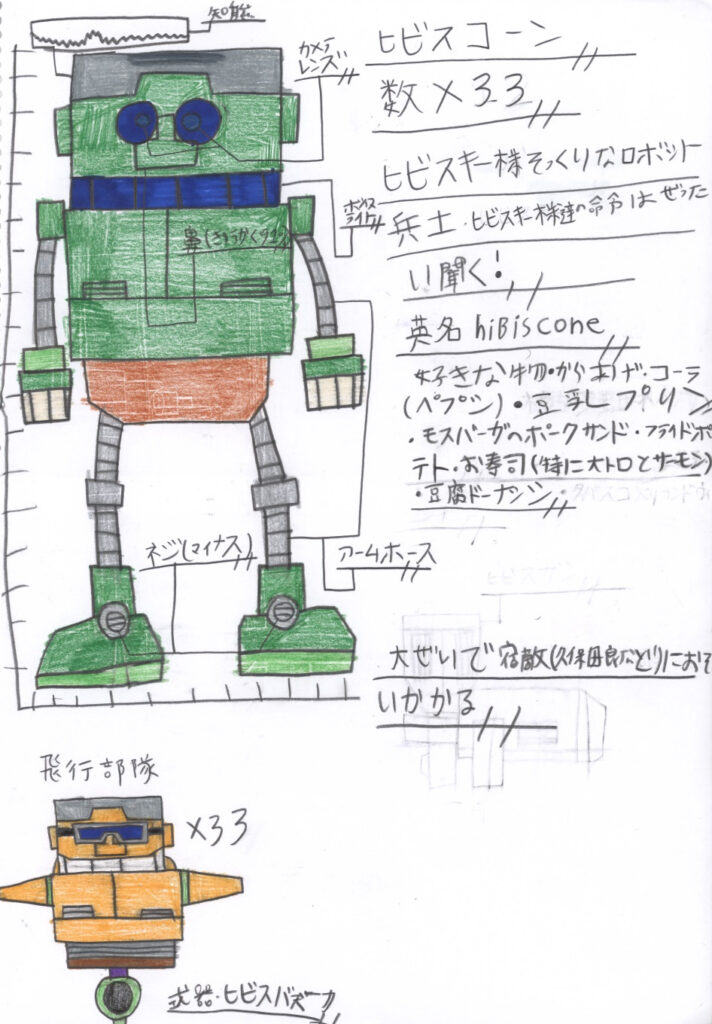 知能
カメラ
レンズ
ヒビスコーン
数×33
ヒビスキー様そっくりなロボット
兵士・ヒビスキー様達の命令はぜった
い聞く!
英名 hiBiscone
好きな物・からあげ・コーラ
(ペプシ)・豆乳プリン
・モスバーガーポークサンド・フライドポ
テト・お寿司(特に大トロとサーモン)
・豆腐ドーナツ
ネジ(マイナス)
アームホース
ヒビスガン
大ぜいで宿敵(久保田良など)におそ
いかかる
飛行部隊
×33
武器・ヒビスバズーカ